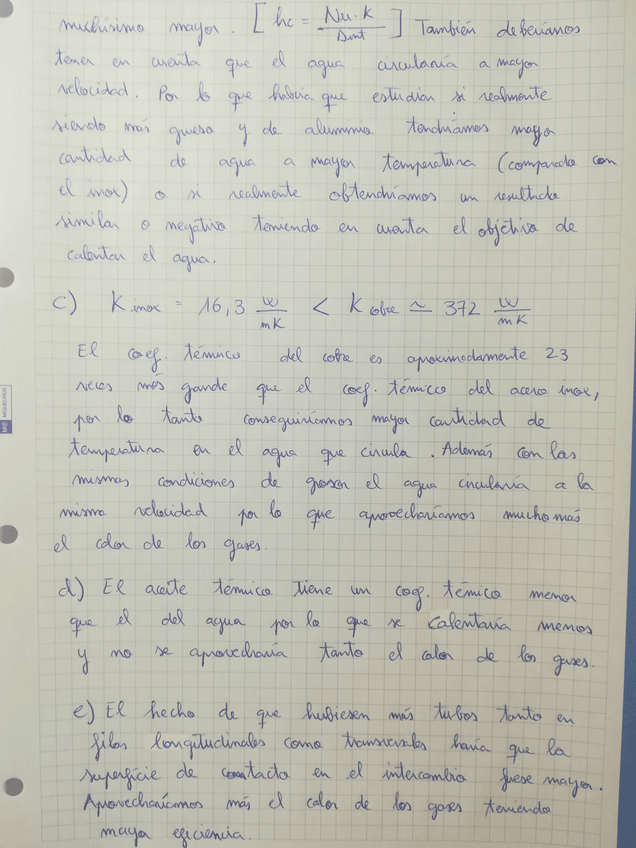 muchísimo mayor. [hc = Nu·K / Dint] También deberíamos
tener en cuenta que el agua circularía a mayor
velocidad. Por lo que habría que estudiar si realmente
siendo más grueso y de aluminio tendríamos mayor
cantidad de agua a mayor temperatura (comparado con
el inox) o si realmente obtendríamos un resultado
similar o negativo teniendo en cuenta el objetivo de
calentar el agua.
c) K inox = 16,3 W/mK < K cobre ≃ 372 W/mK
El coef. térmico del cobre es aproximadamente 23
veces más grande que el coef. térmico del acero inox,
por lo tanto conseguiríamos mayor cantidad de
temperatura en el agua que circula. Además con las
mismas condiciones de grosor el agua circularía a la
misma velocidad por lo que aprovecharíamos mucho más
el calor de los gases.
d) El aceite térmico tiene un coef. térmico menor
que el del agua por lo que se calentaría menos
y no se aprovecharía tanto el calor de los gases.
e) El hecho de que hubiesen más tubos tanto en
filas longitudinales como transversales haría que la
superficie de contacto en el intercambio fuese mayor.
Aprovecharíamos más el calor de los gases teniendo
mayor eficiencia.